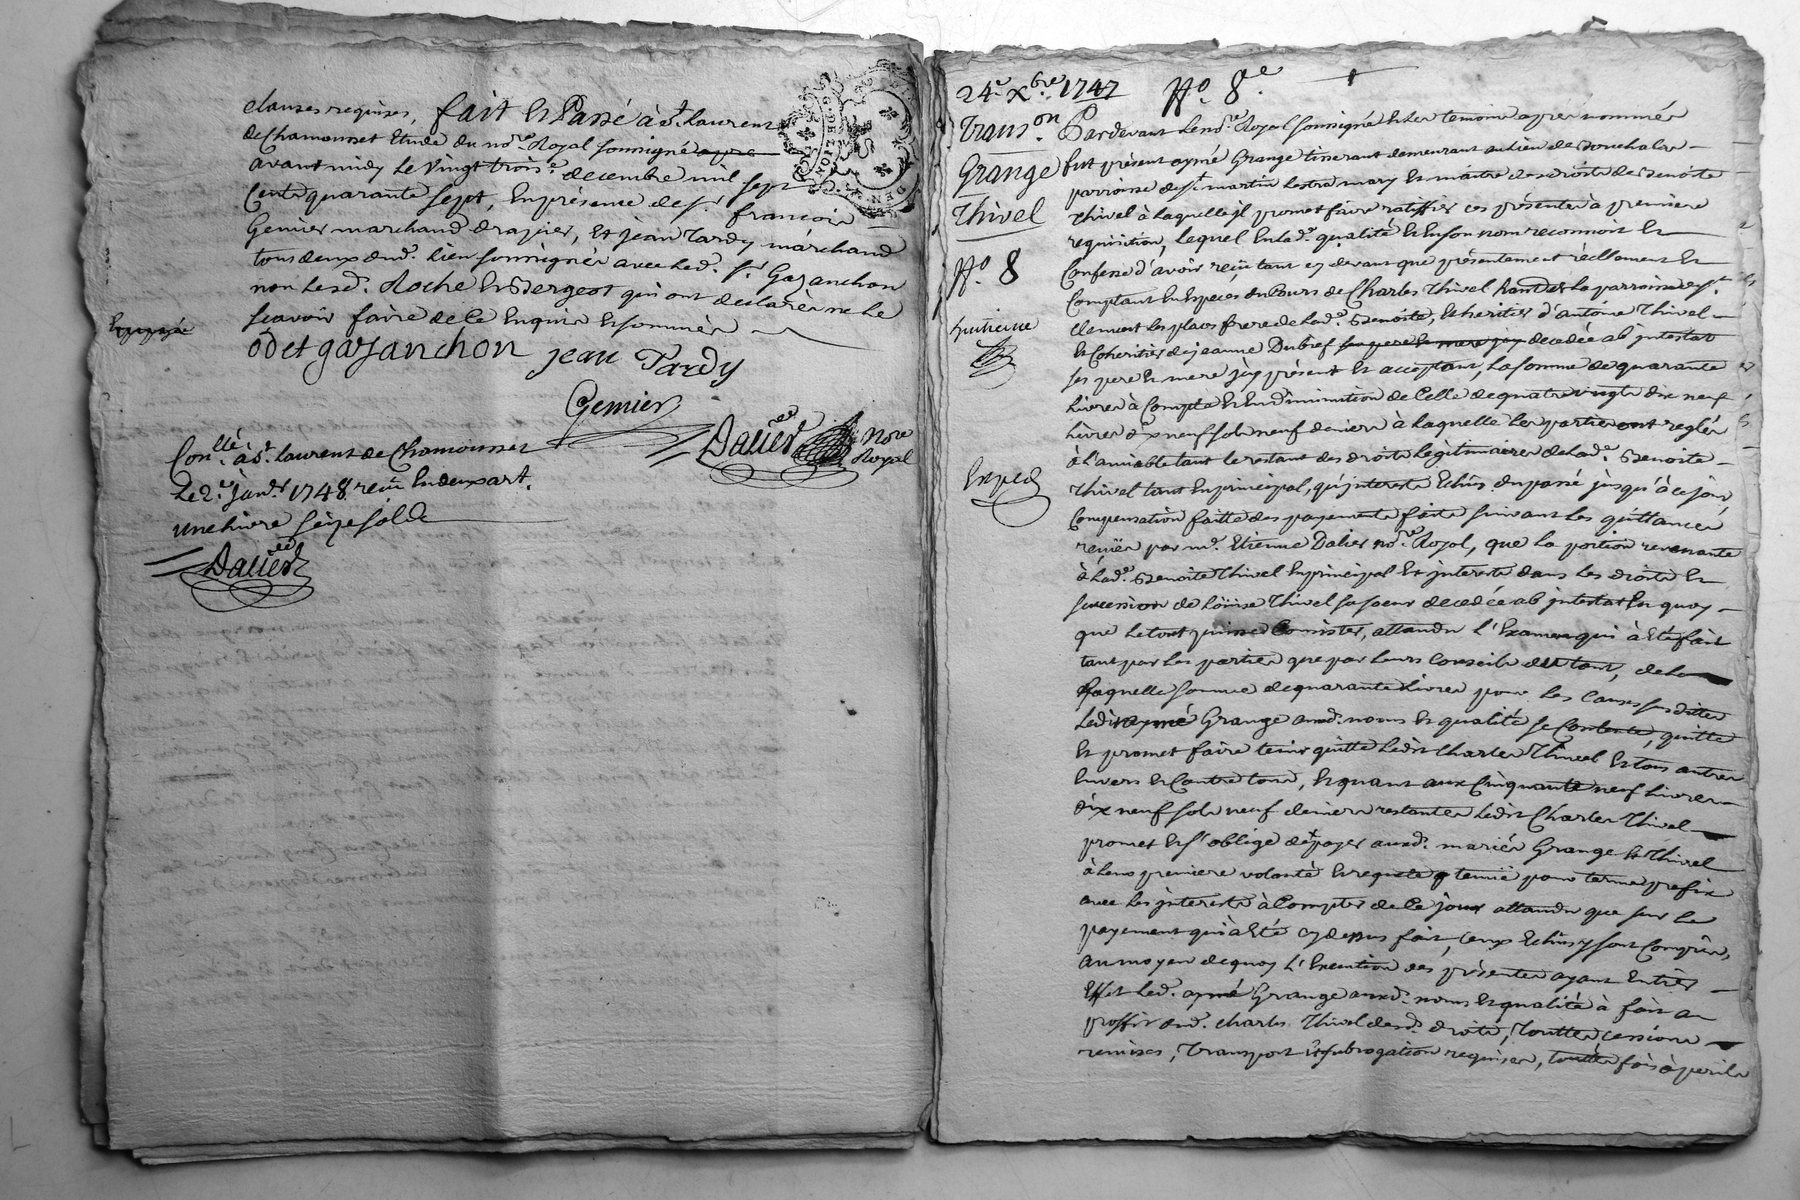 clauses requises, fait et Passé à St. Laurent
de Chamousset Etude du nore. Royal soussigné
avant midy le vingt trois e. decembre mil sept
Cents quarante sept, En présence de sr. francois
Gemier marchand drapier, Et jean Tardy marchand
tous deux dud. lieu soussignés avec led. sr. Gazanchon
non lesd. Roche et Bergeot qui ont declarés ne le
scavoir faire de ce Enquis et sommés
odet gazanchon jean Tardy
Gemier
Dalier Nore Royal
Conllé. à St. laurent de Chamousset
Le 2e. janr. 1748 reçu En deux art.
une livre seize sols
Dalier
24e. xbre. 1747 No. 8e.
Transon.
Grange
Thivel
No. 8
huitieme
Exped
Pardevant le nore. Royal soussigné et les temoins après nommés
fut présent aymé Grange tisserant demeurant au lieu de
parroisse de St. martin lestra mary et maitre des droits de Benoite
Thivel à laquelle il promet faire ratiffier ces présentes à premiere
requisition, lequel En lad. qualité et En son nom reconnoit et
Confesse d'avoir reçu tant cy devant que présentement réellement et
Comptant En Especes du Cours de Charles Thivel hant de la parroisse St.
Clement les places frere de lad. Benoite, et heritier d'antoine Thivel
et Coheritier de jeanne Dubref decedée ab intestat
ses pere et mere icy présent et acceptant, la somme de quarante
livres à Compte et En diminution de Celle de quatre vingts dix neuf
livres dix neuf sols neuf deniers à laquelle les parties ont reglés
à l'amiable tant le restant des droits légitimaires de lad. Benoite
Thivel tant En principal, qu'interests Echus du passé jusqu'à ce jour
Compensation faitte des payements faits suivant les quittances
reçues par me. Etienne Dalier nore. Royal, que la portion revenante
à lad. Benoite Thivel En principal et interests dans les droits et
succession de Loüise Thivel sa soeur decedée ab intestat En quoy
que le tout puisse Consister, attandu l'Examen qui à Eté fait
tant par les parties que par leurs Conseils du tout, de la
laquelle somme de quarante livres pour les Causes susdittes
ledit aymé Grange auxd. noms et qualité se Contente, quitte
et promet faire tenir quitte ledit Charles Thivel Et tous autres
Envers et Contre tous, Et quant aux Cinquante neuf livres
dix neuf sols neuf deniers restantes ledit Charles Thivel
promet et s'oblige de payer auxd. mariés Grange et Thivel
à leur premiere volonté et requete pour terme prefix
avec les interests à Compter de Ce jour attandu que sur le
payement qui à Eté cy dessus fait, ceux Echus y sont Compris,
au moyen de quoy l'Execution des présentes ayant Entier
Effet led. aymé Grange auxd. noms et qualité à fait au
proffit dud. charles Thivel desd. droits, touttes cessions
remises, Transport et subrogation requises, touttes fois à perils